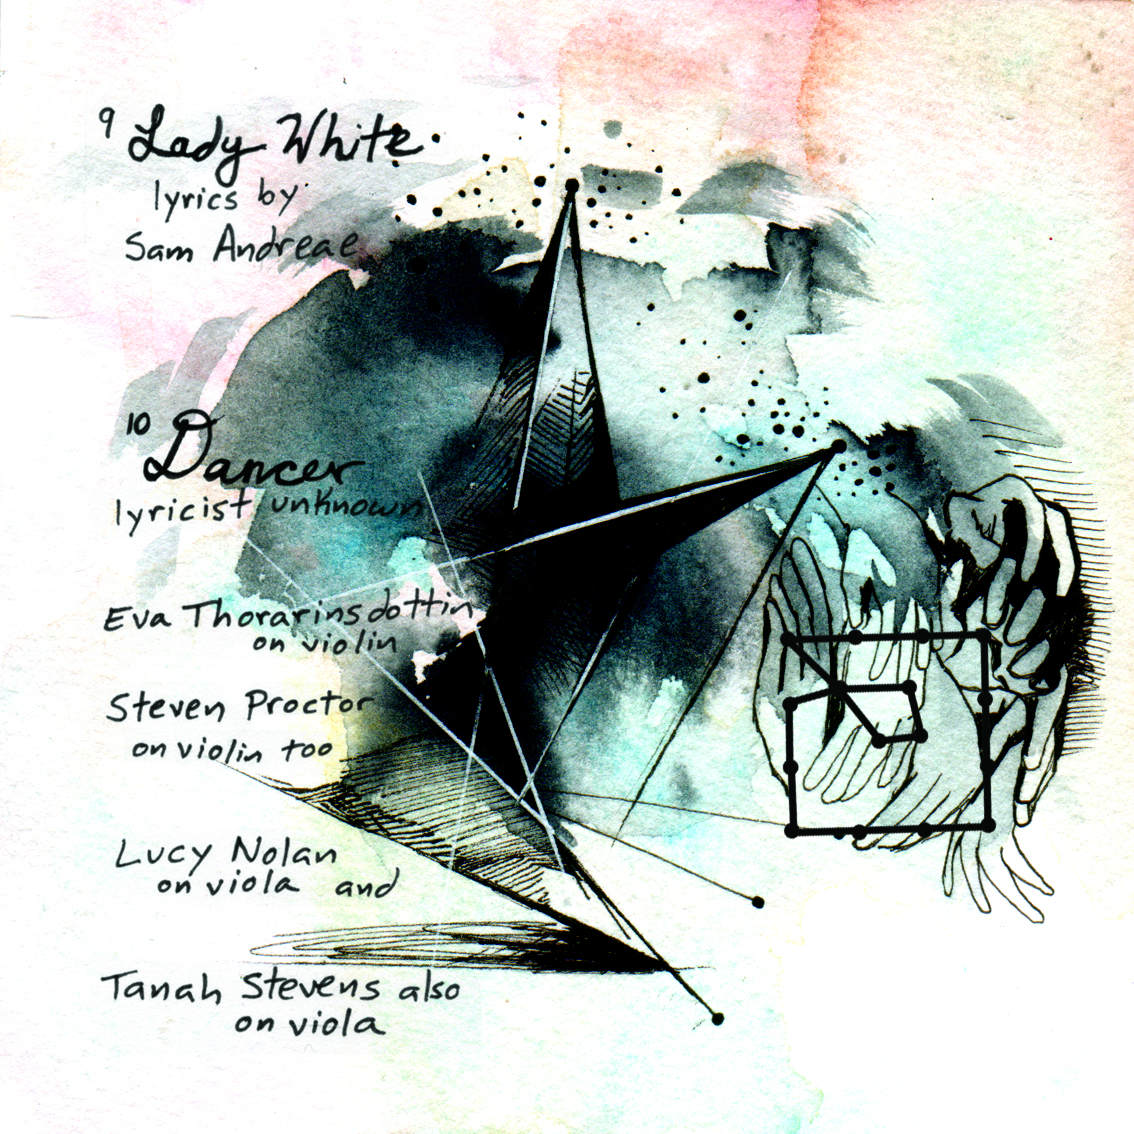 9 Lady White
lyrics by
Sam Andreae
10 Dancer
lyricist unknown
Eva Thorarinsdottin
on violin
Steven Proctor
on violin too
Lucy Nolan
on viola and
Tanah Stevens also
on viola